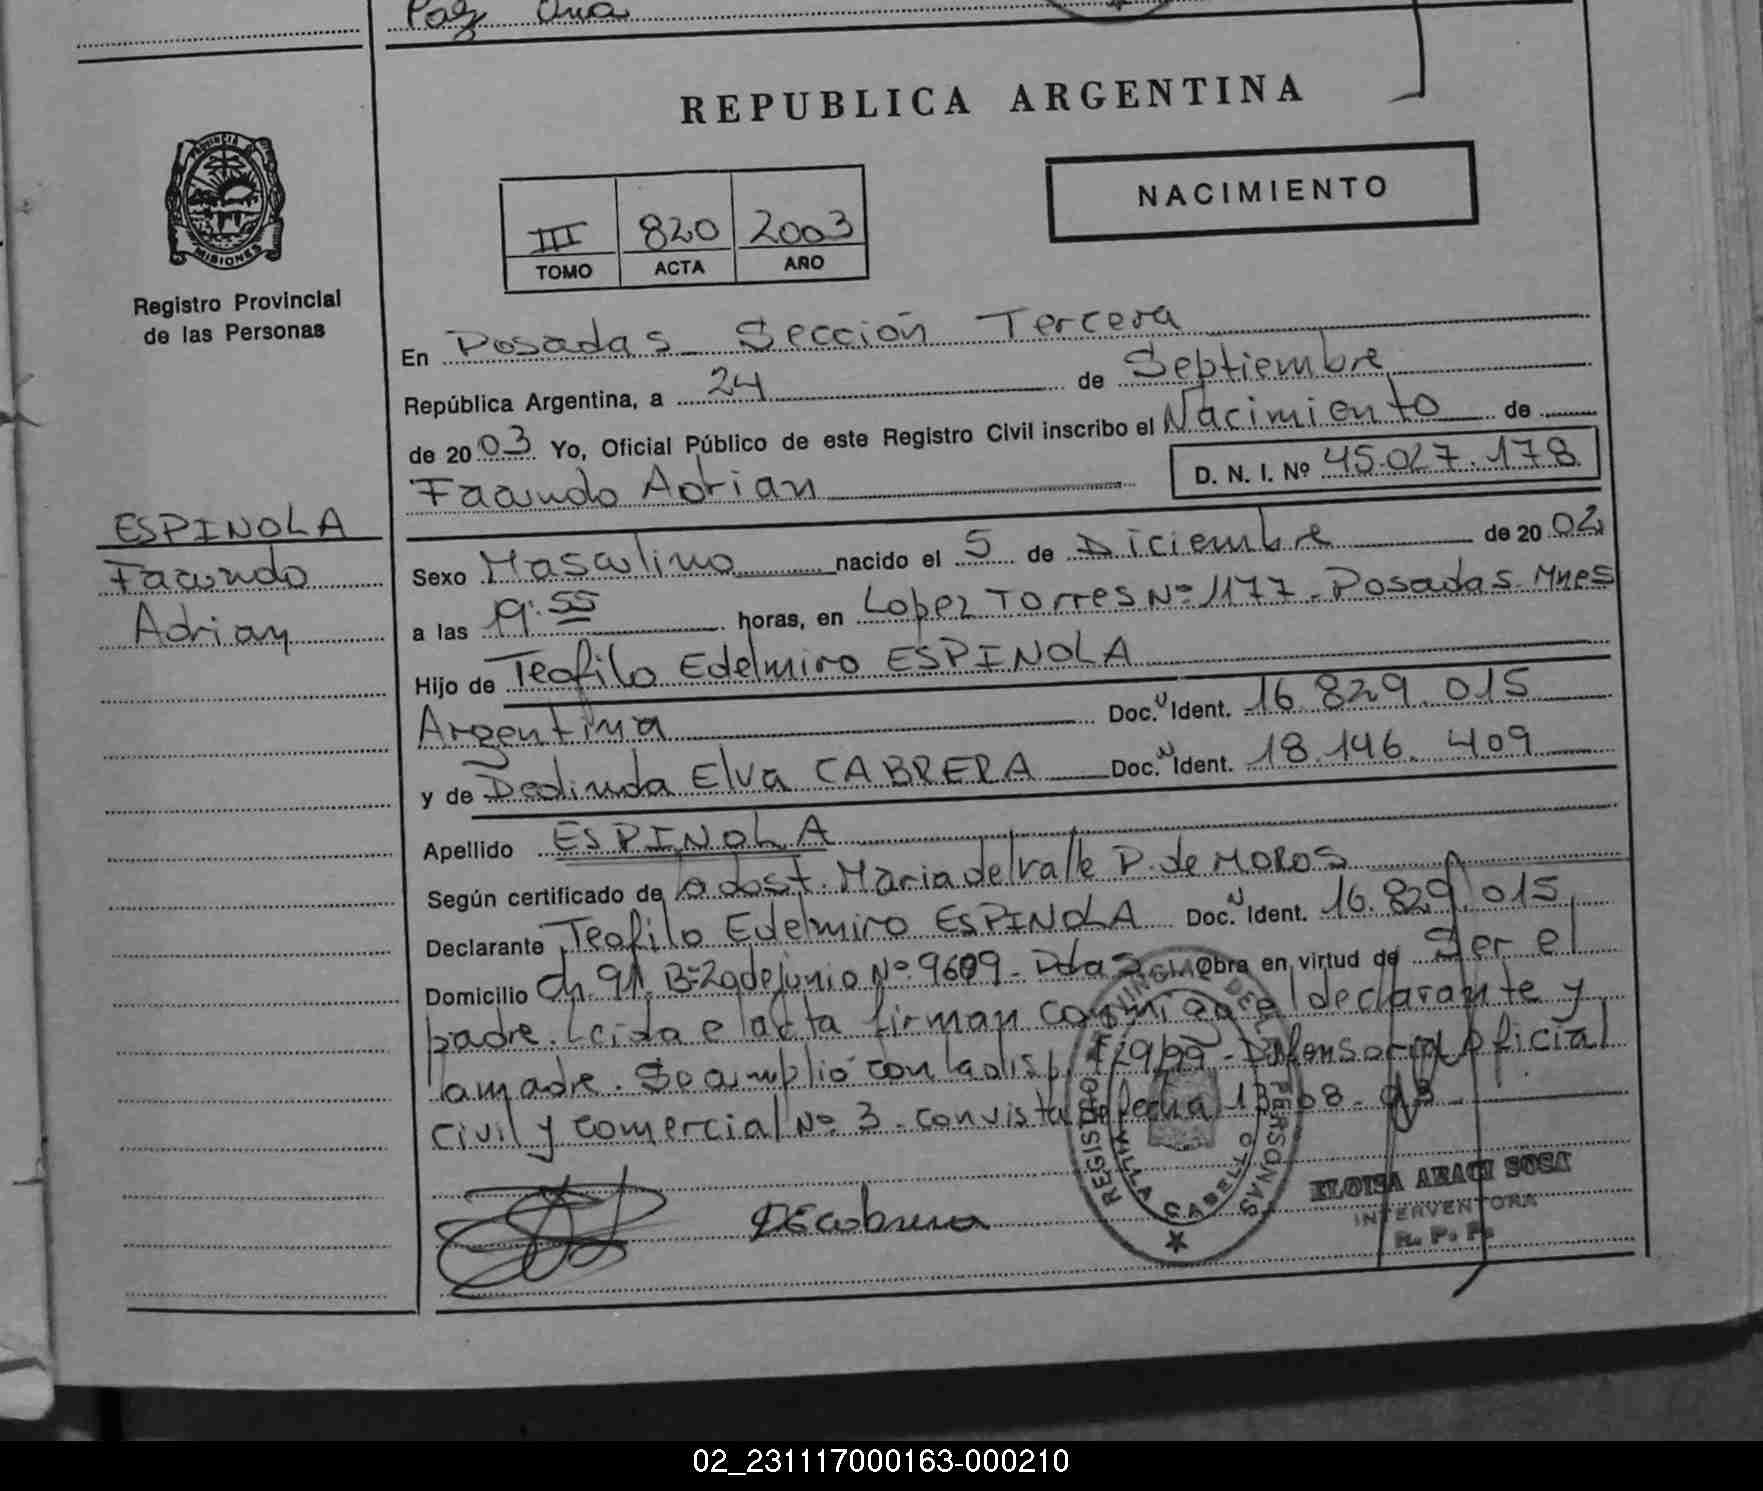 Paz Ana
REPUBLICA ARGENTINA
PROVINCIA DE
MISIONES
Registro Provincial
de las Personas
NACIMIENTO
III 820 2003
TOMO ACTA AÑO
En Posadas Sección Tercera
República Argentina, a 24 de Septiembre
de 2003 Yo, Oficial Público de este Registro Civil inscribo el Nacimiento de
Facundo Adrian D. N. I. Nº 45.027.178
ESPINOLA
Facundo
Adrian
Sexo Masculino nacido el 5 de Diciembre de 2002
a las 19:55 horas, en Lopez Torres Nº 1177 - Posadas Mnes
Hijo de Teofilo Edelmiro ESPINOLA
Argentina Doc. Ident. 16.829.015
y de Deolinda Elva CABRERA Doc. Ident. 18.146.409
Apellido ESPINOLA
Según certificado de obst. Maria del Valle P. de MOROS
Declarante Teofilo Edelmiro ESPINOLA Doc. Ident. 16.829.015
Domicilio Ch. 91 Bº 20 de junio Nº 9609 - Pdas Obra en virtud de Ser el
padre. Leida el acta firman conmigo el declarante y
la madre. Se amplió con la disp. Defensoria Oficial
civil y comercial Nº 3 - con vista de fecha
DECabrera
REGISTRO PROVINCIAL DE LAS PERSONAS
VILLA CABELLO
ELOISA ARACI SOSA
INTERVENTORA
R. P. P.
02_231117000163-000210